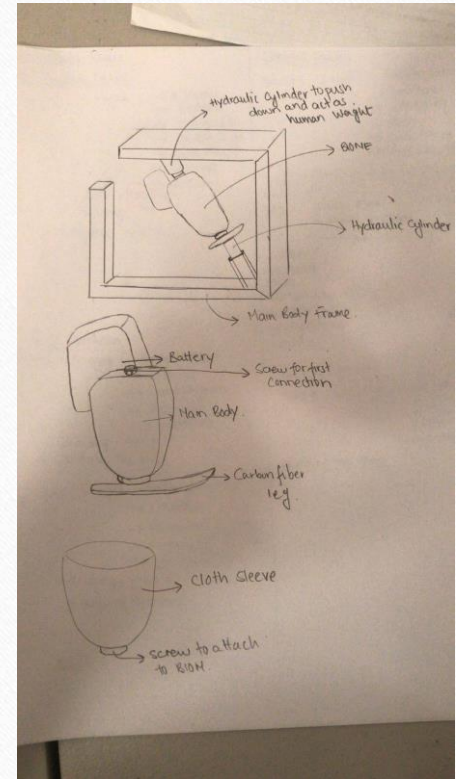 Hydraulic Cylinder to push
down and act as
human weight
BIONE
Hydraulic Cylinder
Main Body Frame.
Battery
Screw for first
connection
Main Body.
Carbon fiber
leg.
Cloth Sleeve
screw to attach
to BIOM.